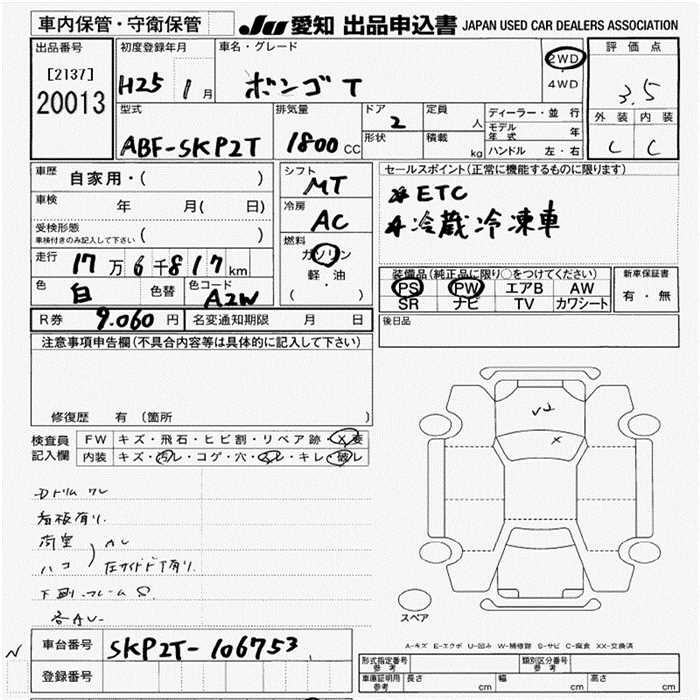 車内保管・守衛保管
JU 愛知 出品申込書 JAPAN USED CAR DEALERS ASSOCIATION
出品番号
[2137]
20013
初度登録年月
H25 1月
車名・グレード
ボンゴ T
2WD
4WD
評価点
3.5
外装 内装
C C
型式
ABF-SKP2T
排気量
1800 cc
ドア
2
形状
定員
人
積載
kg
ディーラー・並行
モデル年式 年
ハンドル 左・右
車歴
自家用・( )
車検
年 月( 日)
受検形態
車検付きのみ記入して下さい ( )
走行
17万6千817km
色
白
色替
色コード
A2W
シフト
MT
冷房
AC
燃料
ガソリン
軽・油
( )
R券 9,060円 名変通知期限 月 日
セールスポイント(正常に機能するものに限ります)
※ETC
※冷蔵冷凍車
装備品(純正品に限り○をつけてください)
PS PW エアB AW
SR ナビ TV カワシート
新車保証書
有・無
後日品
注意事項申告欄(不具合内容等は具体的に記入して下さい)
修復歴 有(箇所 )
検査員記入欄
FW キズ・飛石・ヒビ割・リペア跡・X要
内装 キズ・汚レ・コゲ・穴・スレ・キレ・破レ
看板有り
下廻フレームS
各AU
スペア
A-キズ E-エクボ U-凹み W-補修跡 S-サビ C-腐食 XX-交換済
N
車台番号 SKP2T-106753
登録番号
型式指定番号 参考
類別区分番号 参考
車庫証明用 参考 長さ cm 幅 cm 高さ cm